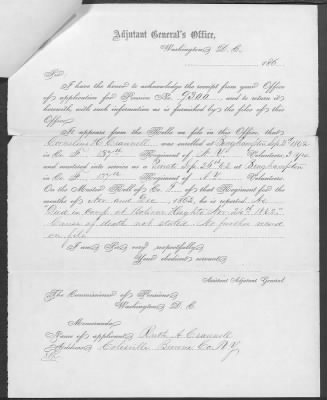 Adjutant General's Office,
Washington, D. C.
186
Sir:
I have the honor to acknowledge the receipt from your Office
of application for Pension No. 9300, and to return it
herewith, with such information as is furnished by the files of this
Office.
It appears from the Rolls on file in this Office, that
Cornelius H. Crannell was enrolled at Binghamton Sep 3d 1862
in Co. F. 137th Regiment of N. Y. Volunteers 3 yrs
and mustered into service as a Private Sep 25th 62 at Binghamton
in Co. F. 137th Regiment of N. Y. Volunteers.
On the Muster Roll of Co. F. of that Regiment for the
months of Nov and Dec, 1862, he is reported
Died in Camp at Bolivar Heights Nov 1862
Cause of death not stated. No further record
on file
I am, Sir, very respectfully,
Your obedient servant,
Assistant Adjutant General.
The Commissioner of Pensions,
Washington, D. C.
Memoranda:
Name of applicant, Ruth A. Crannell
Address, Colesville Broome Co. N. Y.